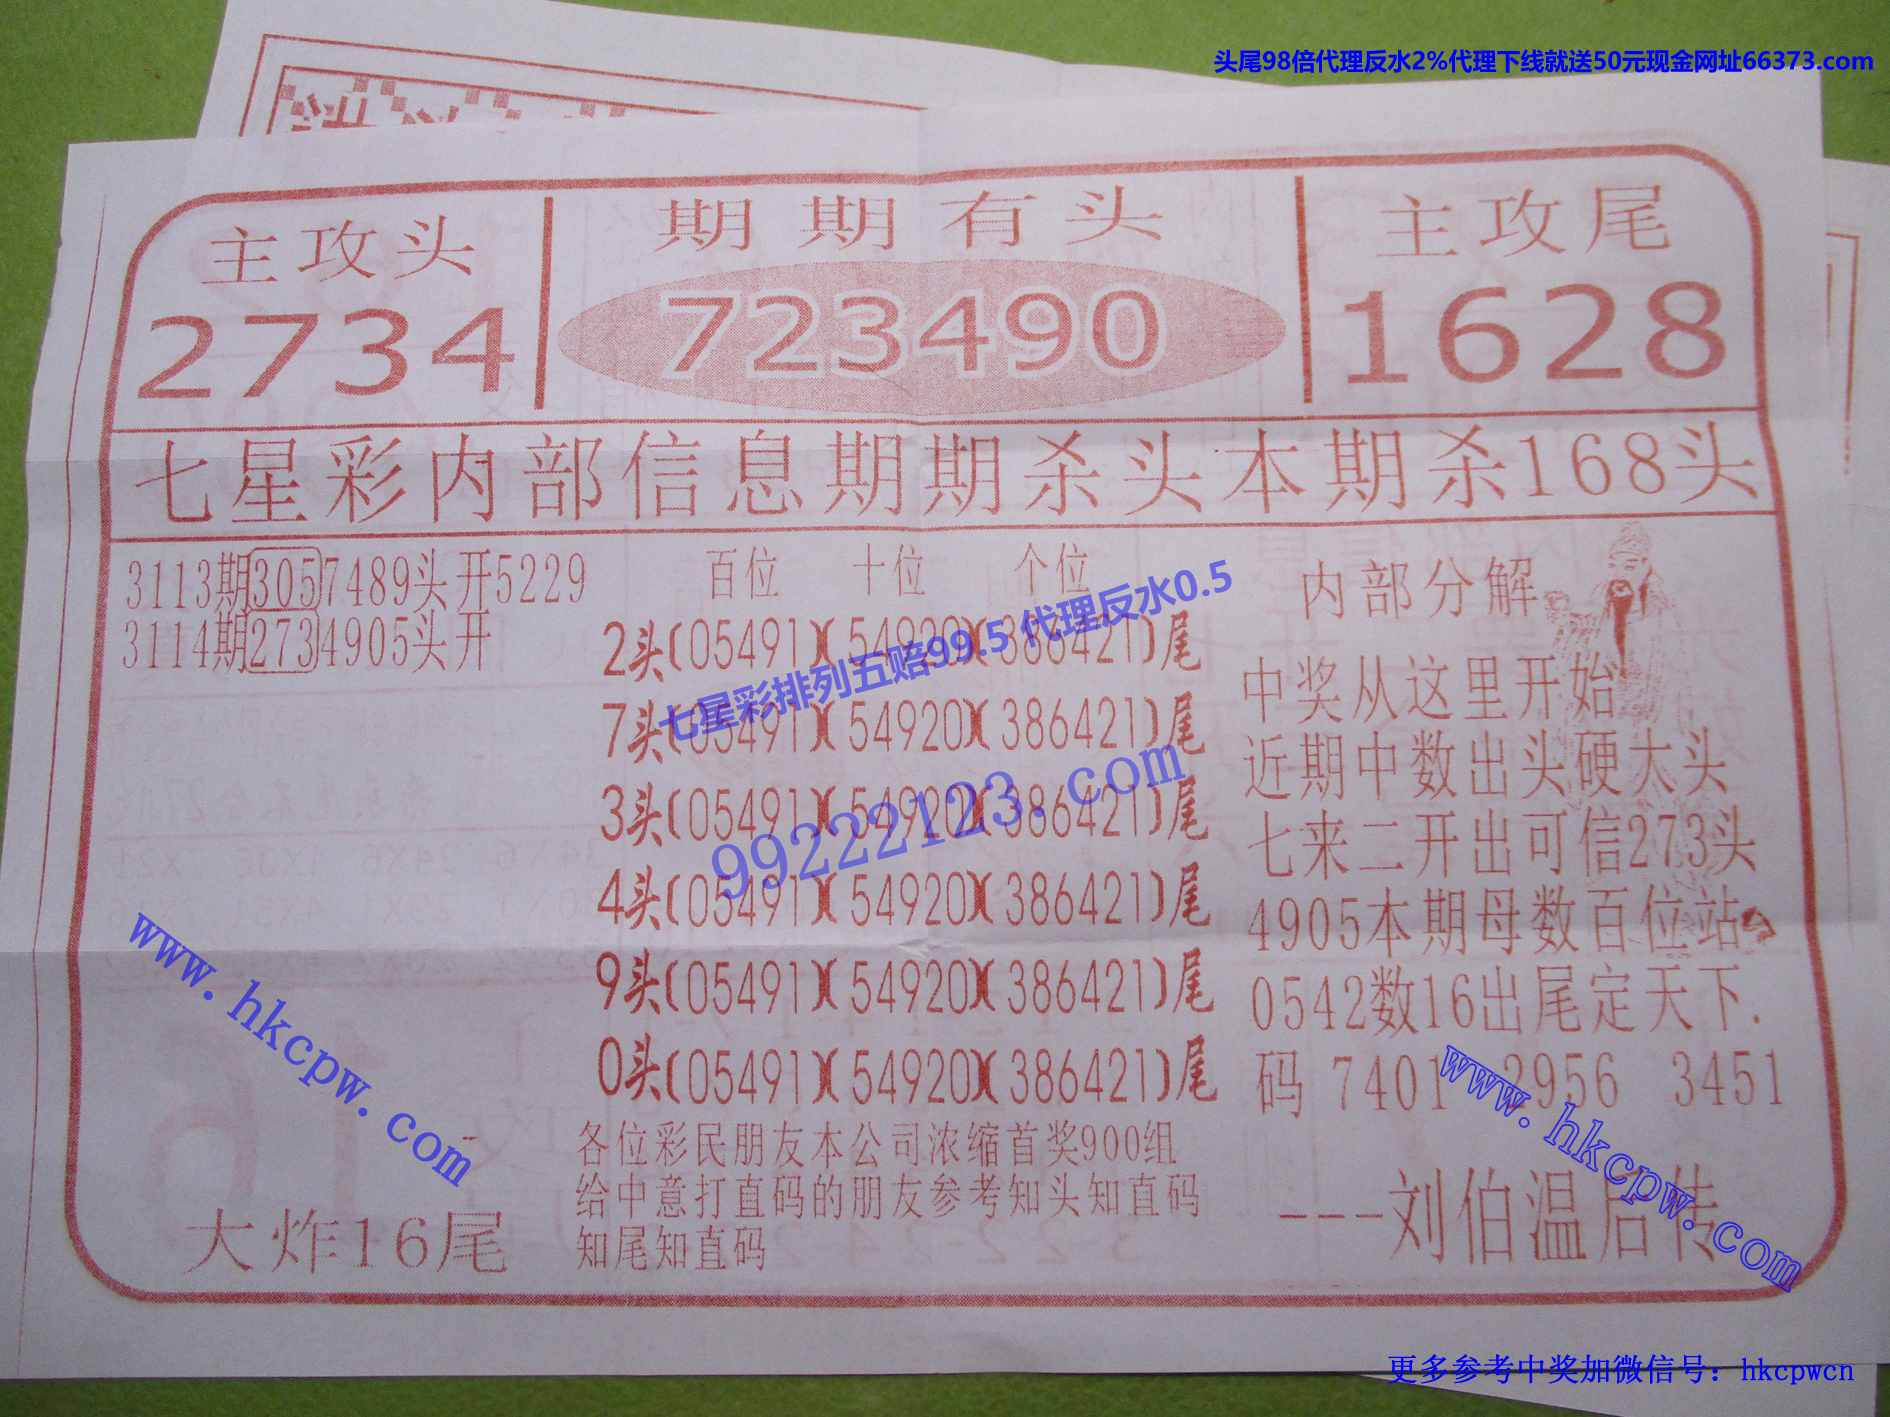 头尾98倍代理反水2%代理下线就送50元现金网址66373.com
主攻头
2734
期期有头
723490
主攻尾
1628
七星彩内部信息期期杀头本期杀168头
3113期3057489头开5229
3114期2734905头开
百位 十位 个位
2头(05491)(54920)(386421)尾
7头(05491)(54920)(386421)尾
3头(05491)(54920)(386421)尾
4头(05491)(54920)(386421)尾
9头(05491)(54920)(386421)尾
0头(05491)(54920)(386421)尾
七星彩排列五赔99.5 代理反水0.5
99222123.com
内部分解
中奖从这里开始
近期中数出头硬太头
七来二开出可信273头
4905本期母数百位站
0542数16出尾定天下.
码 7401 2956 3451
---刘伯温后传
各位彩民朋友本公司浓缩首奖900组
给中意打直码的朋友参考知头知直码
知尾知直码
大炸16尾
www.hkcpw.com
www.hkcpw.com
更多参考中奖加微信号：hkcpwcn